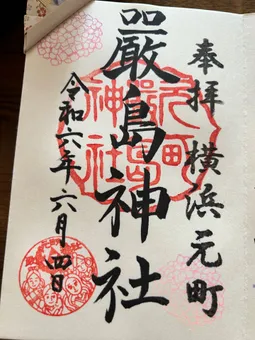 奉拝 横浜元町
嚴島神社
令和六年 六月四日
元町
嚴島
神社